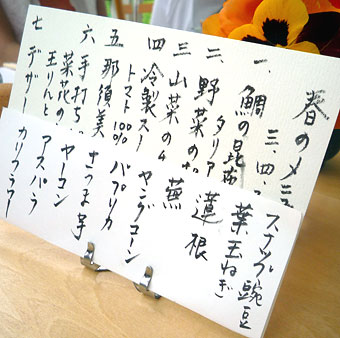 春のメニ
三、四、
一、鯛の昆布
タリア
二、野菜の
三 山菜の
四 冷製スー
トマト100%
五 那須美
六 手打ち
菜花の
玉りんと
七 デザー
スナップ豌豆
葉玉ねぎ
蓮根
蕪
ヤングコーン
パプリカ
さつま芋
ヤーコン
アスパラ
カリフラワー